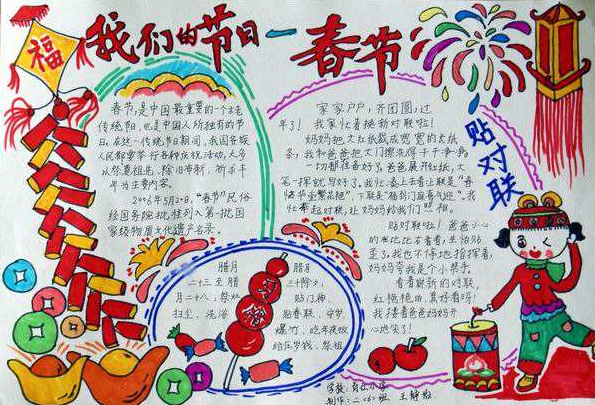 我们的节日—春节
福
春节,是中国最重要的一个古老
传统节日,也是中国人所独有的节
日。在这一传统节日期间,我国各族
人民都要举行各种庆祝活动,大多
以祭奠祖先、除旧布新、祈求丰
年为主要内容。
2006年5月20日,“春节”民俗
经国务院批准列入第一批国
家级物质文化遗产名录。
腊月
二十三至腊
月二十八,祭灶
扫尘、洗浴
腊月
三十除夕,
贴门神,
贴春联,守岁,
爆竹,吃年夜饭
给压岁钱、祭祖
贴对联
家家户户,齐团圆,过
年了!我家忙着换新对联啦!
妈妈把大红纸裁成宽宽的大纸
条,我和爸爸把大门擦洗得干干净净。
一切都准备好了,爸爸展开红纸,大
笔一挥就写好了。我忙凑上去看上联是“春
临华堂繁花艳”,下联是“福到门庭喜气迎”。我
忙举起对联,让妈妈给我们照相。
贴对联啦!爸爸小心
妈妈夸我是个小帮手。
看着崭新的对联
红艳艳的真好看吗!
我搂着爸爸妈妈开
心地笑了!
学校:
制作:二<6>班 王静怡